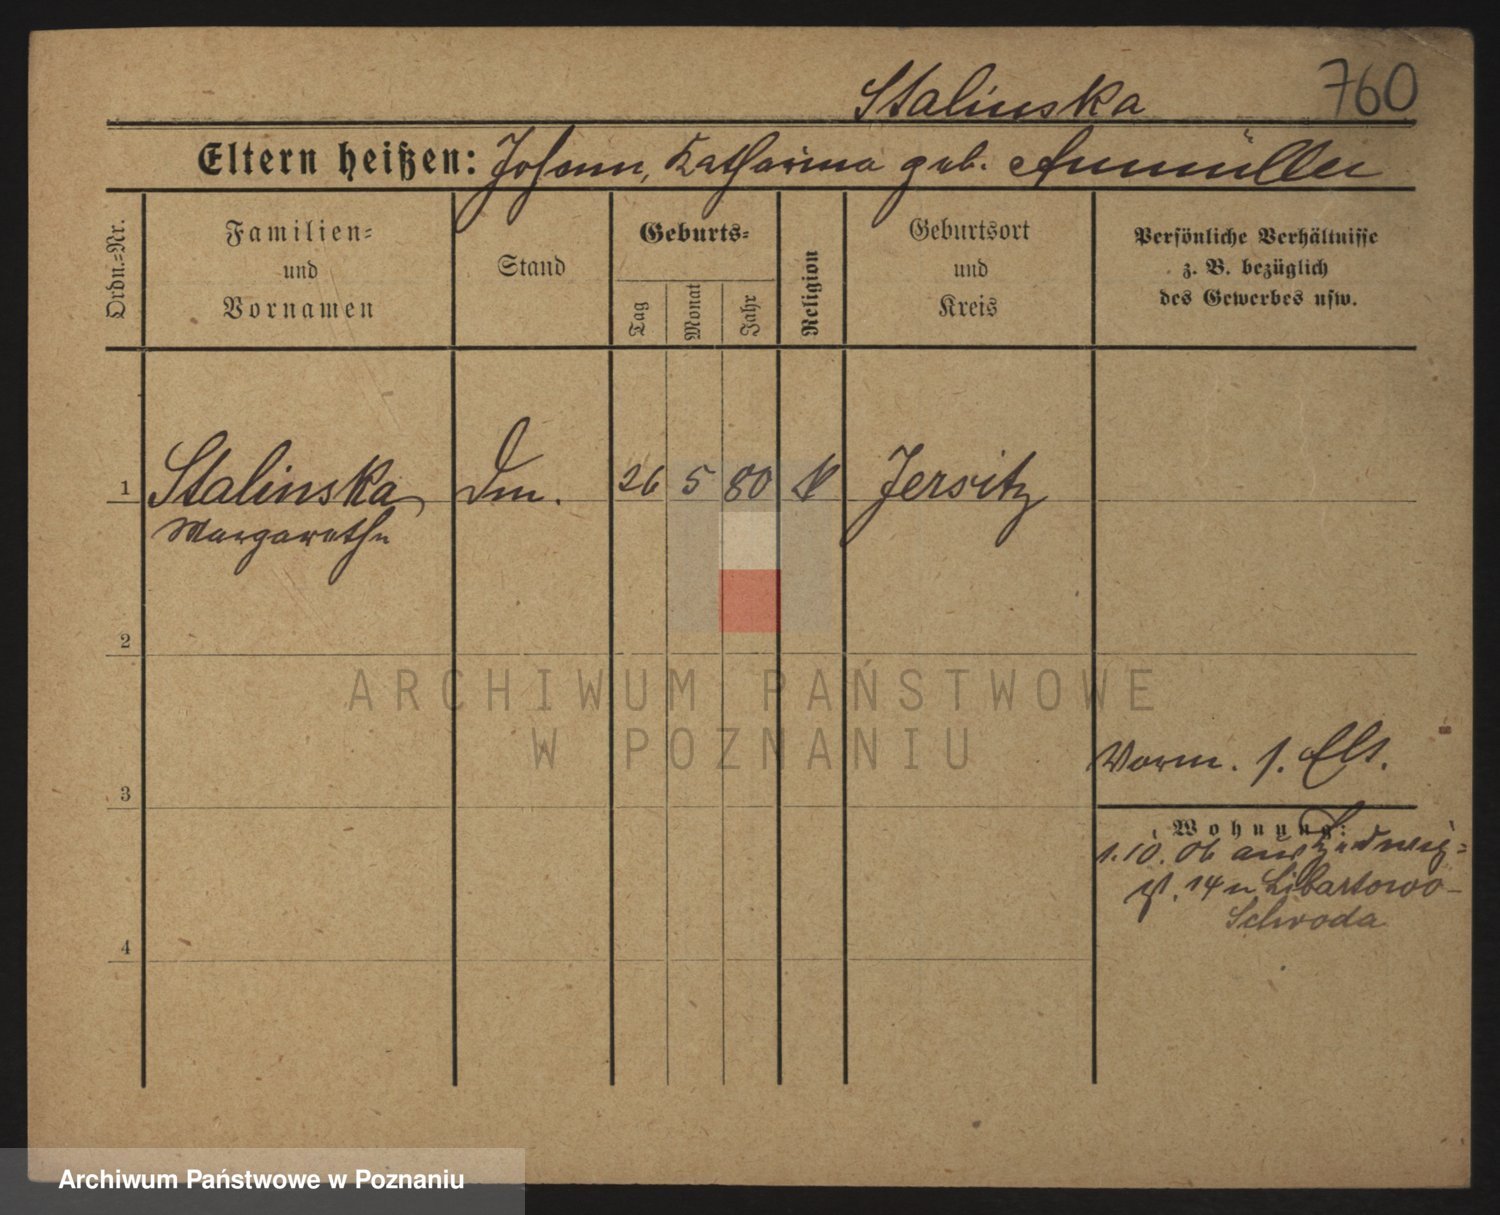 Stalinska 760
Eltern heißen: Johann, Katharina geb. Aumüller
Ordn.-Nr.
Familien-
und
Vornamen
Stand
Geburts-
Tag
Monat
Jahr
Religion
Geburtsort
und
Kreis
Persönliche Verhältnisse
z. B. bezüglich
des Gewerbes usw.
1 Stalinska Dm. 26 5 80 K Jersitz
Margarethe
2
ARCHIWUM PAŃSTWOWE
W POZNANIU
Vorm. s. Elt.
3
Wohnung:
1.10.06 aus Hedwig-
st. 14 n Libartowo-
Schroda
4
Archiwum Państwowe w Poznaniu